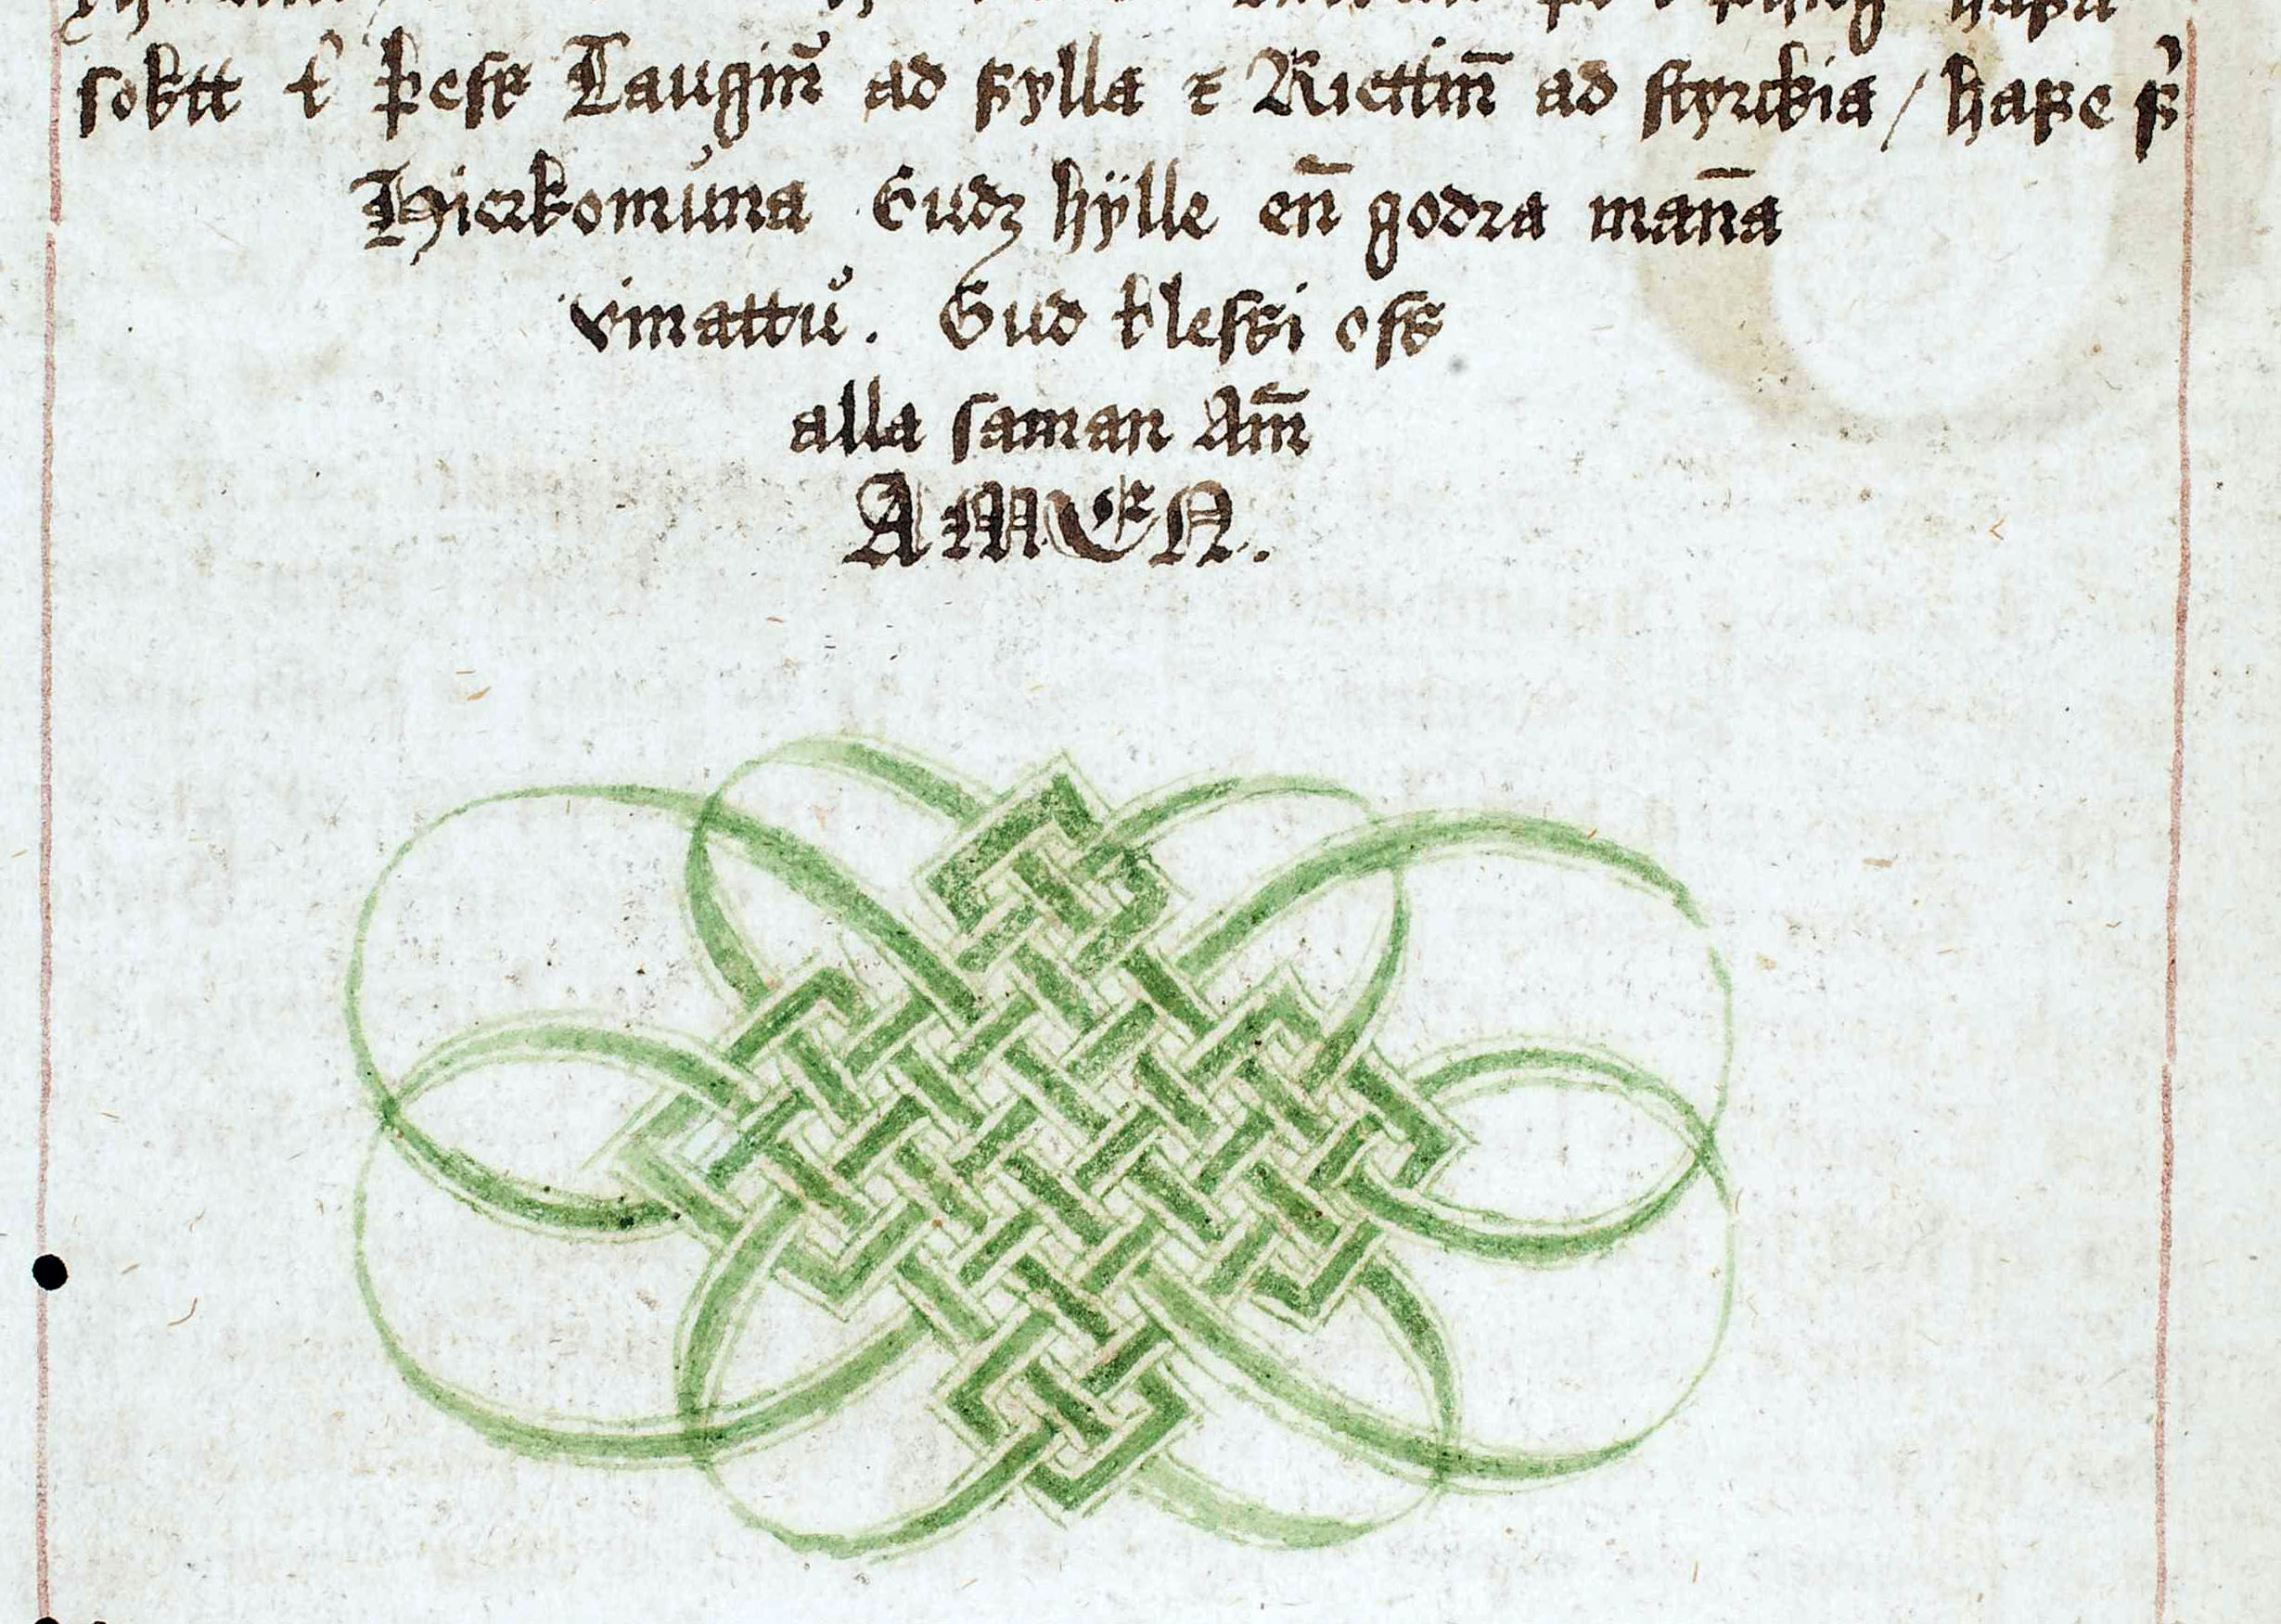 soktt t̉ þess Laugin̄ ad fylla ꛔ Riettin̄ ad styrckia / hafe þr̉
Hierkomuna Gudz hylle en̄ godra man̄a
vinattu̾. Gud blessi oss
alla saman Am̄
AMEN.